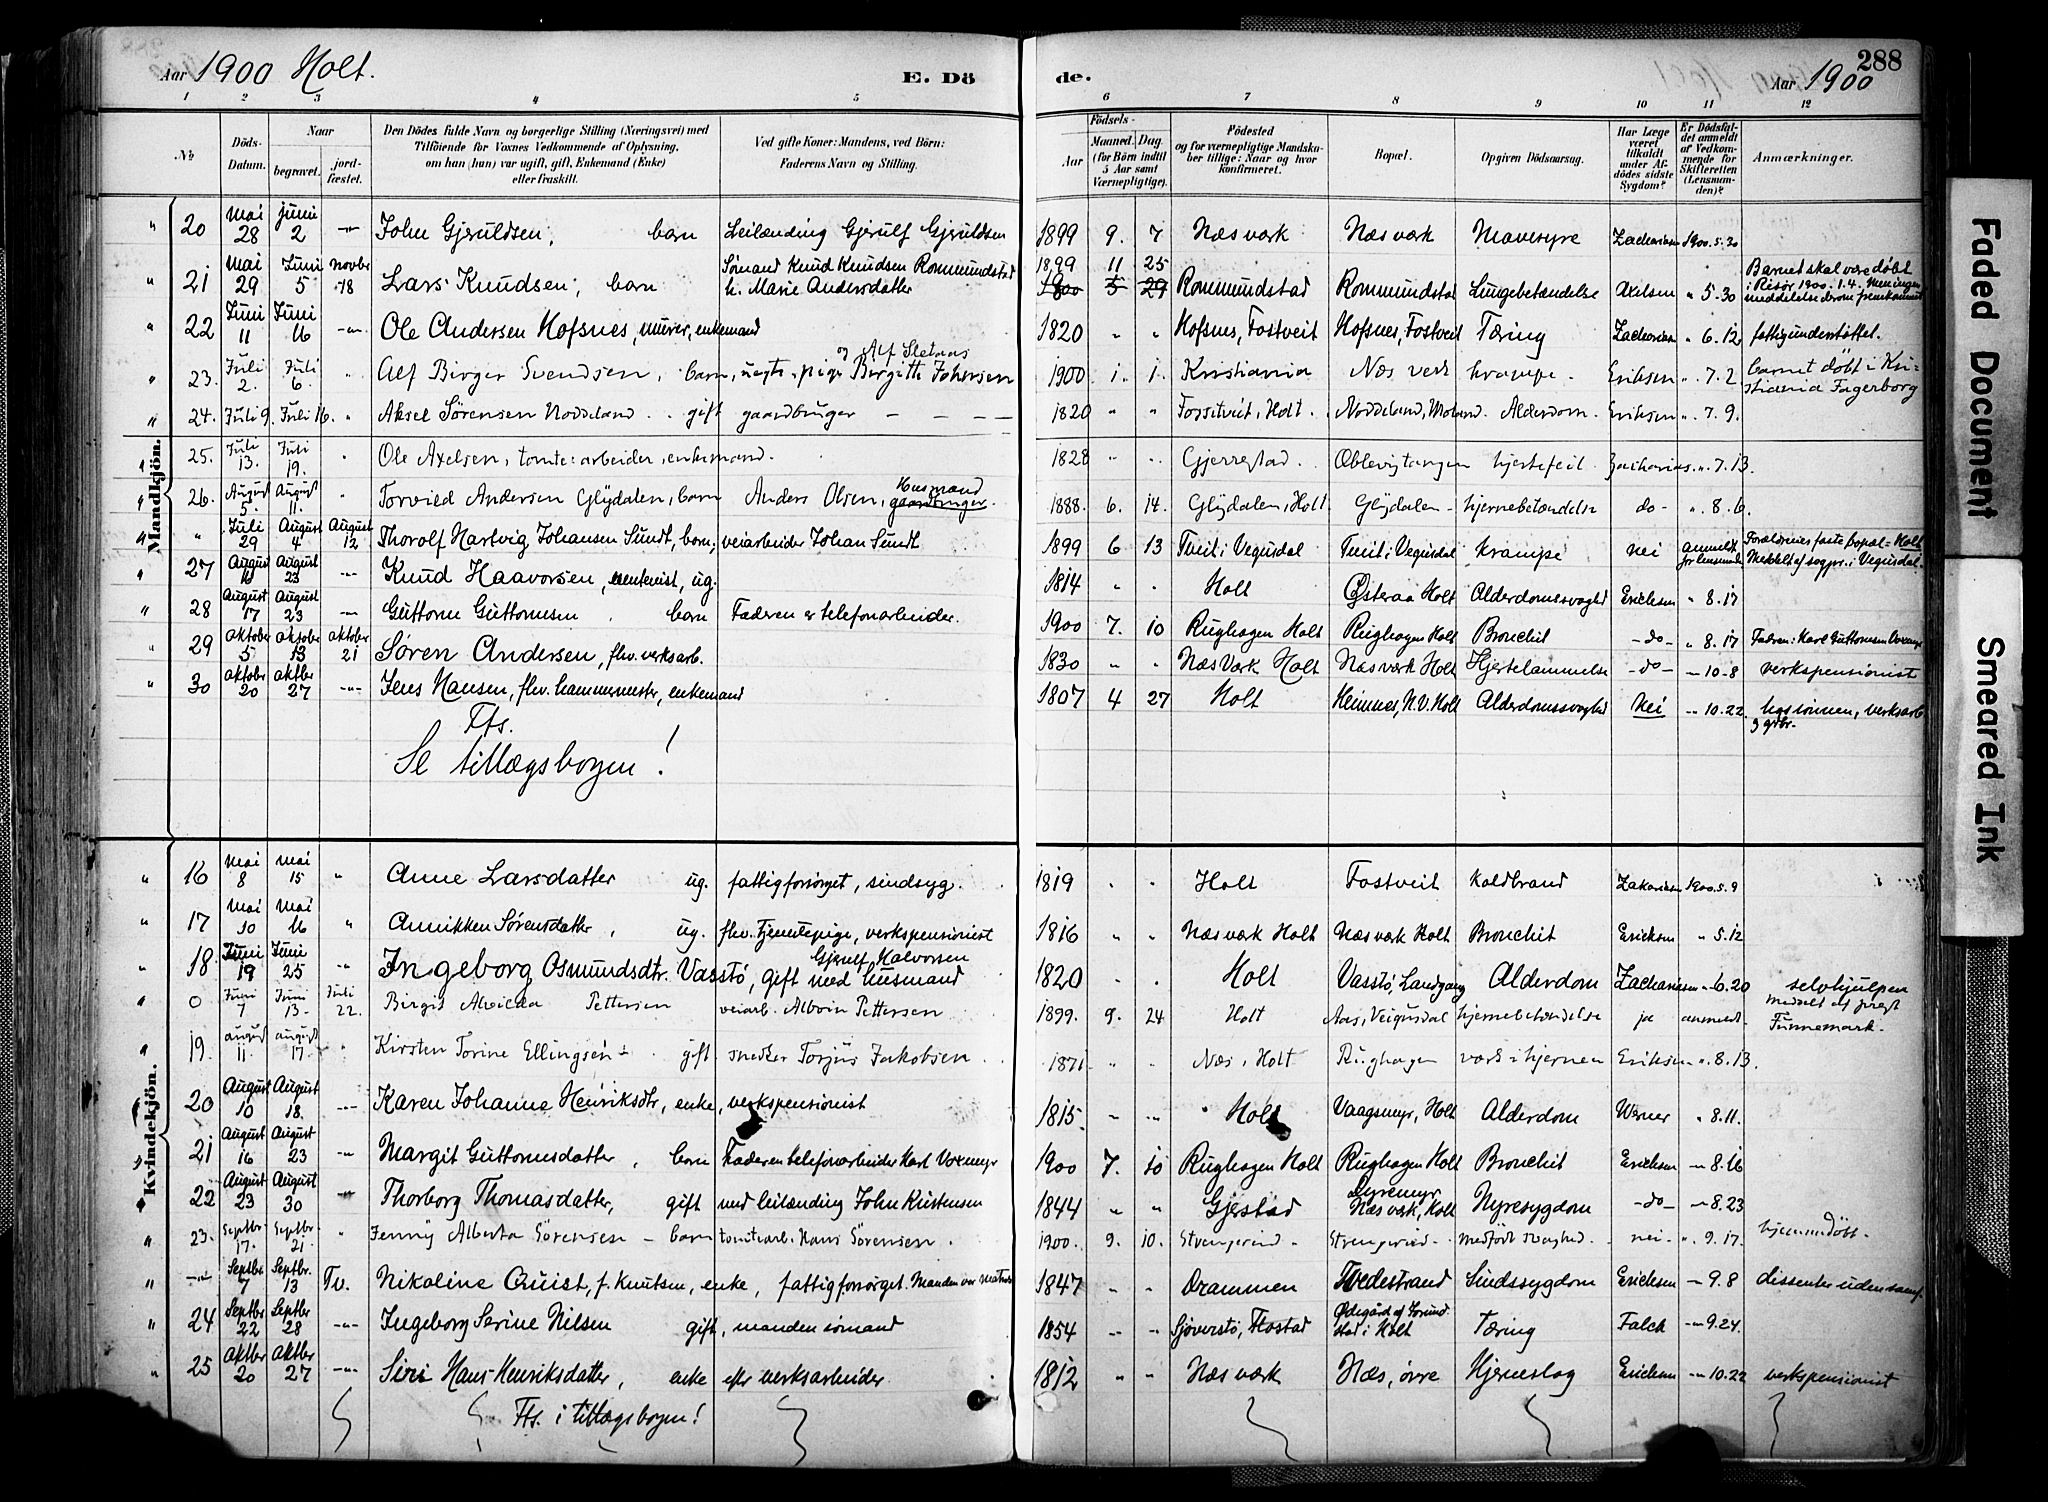 Aar 1900 Holt. E. Döde. Aar 1900 288
1 2 3 4 5 6 7 8 9 10 11 12
№ Döds-Datum. Naar begravet. jordfæstet. Den Dödes fulde Navn og borgerlige Stilling (Næringsvei) med Tilföiende for Voxnes Vedkommende af Oplysning, om han (hun) var ugift, gift, Enkemand (Enke) eller fraskilt. Ved gifte Koner: Mandens, ved Börn: Faderens Navn og Stilling. Födsels- Aar Maaned. Dag. (for Börn indtil 5 Aar samt Værnepligtige). Födested og for værnepligtige Mandskaber tillige: Naar og hvor konfirmeret. Bopæl. Opgiven Dödsaarsag. Har Læge været tilkaldt under Afdödes sidste Sygdom? Er Dödsfaldet anmeldt af Vedkommende for Skifteretten (Lensmanden)? Anmærkninger.
Mandkjön.
" 20 Mai 28 Juni 2 -"- John Gjeruldsen, barn Leilænding Gjerulf Gjeruldsen 1899 9. 7 Næs værk Næs værk Mavesyre Zachariasen 1900.5.30
" 21 Mai 29 Juni 5 Novbr 18 Lars Knudsen, barn Sømand Knud Knudsen Rommundstad h. Marie Andersdatter 1899 11 25 1900 5 29 Rommundstad Rommundstad Lungebetændelse Axelsen " 5.30 Barnet skal være døbt i Risör 1900.1.4. Men ingen meddelelse derom fremkommet
" 22 Juni 11 Juni 16 -"- Ole Andersen Hofsnes, murer, enkemand 1820 " " Hofsnes, Fostveit Hofsnes, Fostveit Tæring Zachariasen " 6.12 fattigunderstøttet.
" 23. Juli 2. Juli 6. " Alf Birger Svendsen, barn, uegte. pige Birgitte Johnsen og Alf Sletnæs 1900 1. 1. Kristiania Næs verk krampe. Eriksen " 7.2 barnet döbt i Kristiania Fagerborg
" 24. Juli 9. Juli 16. " Aksel Sörensen Noddeland. gift gaardbruger - - - - 1820 " " Fossitveit, Holt. Noddeland, Moland. Alderdom. Eriksen " 7.9.
" 25. Juli 13. Juli 19. " Ole Axelsen, tomtearbeider, enkemand. 1828 " " Gjerrestad. Oblevigtangen hjertefeil Zacharias " 7.13.
" 26. August 5. August 11. " Torvild Andersen Glýdalen, barn Anders Olsen, gaardbruger. Husmand 1888. 6. 14. Glýdalen, Holt. Glýdalen - hjernebetændelse do- " 8.6.
" " Juli 29 August 4 August 12 Thorolf Hartvig Johansen Sundt, barn, veiarbeider Johan Sundt 1899 6 13 Tveit i Vegusdal Tveit i Vegusdal Krampe nei anmeldt for lensmand Forældrenes faste bopæl = Holt Meddelt af sogpr. i Vegusdal.
" 27 August 16 August 23 -"- Knud Haavorsen, ug. 1814 " " Holt Østeraa Holt Alderdomssvaghed Ericksen " 8.17
" 28 August 17 August 23 -"- Guttorm Guttormsen, barn Faderen er telefonarbeider. 1900 7. 10 Rughagen Holt Rughagen Holt Bronchit -do- " 8.17 Faderen: Karl Guttormsen Voxmyr
" 29 Oktober 5 Oktober 13 Oktober 21 Søren Andersen, fhv. verksarb. 1830 " " Næs Værk Holt Næs værk Holt Hjertelammelse -do- -"- 10-8 verkspensionist
" 30 Oktober 20 Oktbr 27 -"- Jens Hansen, fhv. hammermester, enkemand 1807 4 27 Holt Heimnes, N.V. Holt Alderdomssvaghed Nei -"- 10.22. hos sönnen, verksarb og grbr.
Fts.
Se tillægsbogen!
Kvindekjön.
" 16 Mai 8 Mai 15 " Anne Larsdatter ug. fattigforsörget, sindsyg. 1819 " " Holt Fostveit Koldbrand Zakariasen 1900.5.9
" 17 Mai 10 Mai 16 " Annikken Sørensdatter, ug. fhv. Tjenestepige, verkspensionist 1816 " " Næs værk Holt Næs værk Holt Bronchit Ericksen " 5.12
" 18 Juni 19 Juni 25 " Ingeborg Osmundsdtr. Vasstø, gift med husmand Gjerulf Halvorsen 1820 " " Holt Vasstø, Landgang Alderdom Zachariasen -"- 6.20 selvhjulpen
" 0 Juni 7 Juni 13. Juli 22. Birgit Alvilda Pettersen veiarb. Alboin Pettersen 1899. 9. 24 Holt Aas, Veigusdal hjernebetændelse ja anmeldt. Meddelt af prest Tunnemark.
" 19. August 11. August 17. " Kirsten Torine Ellingsen - gift snedker Torjus Jakobsen 1871 " " Næs, Holt Rughagen vært i hjernen Eriksen " 8.13.
20 August 10 August 18. -"- Karen Johanne Henriksdtr, enke, verkspensionist 1815 " " Holt Vaagsmyr, Holt Alderdom Werner " 8.11.
" 21 August 16 August 23 -"- Margit Guttormsdatter, barn Faderen telefonarbeider Karl Voxmyr 1900 7. 10 Rughagen Holt Rughagen Holt Bronchit Ericksen -"- 8.16
22 August 23 August 30 -"- Thorborg Thomasdatter, gift med leilænding John Kristensen 1844 " " Gjerstad Dyremyr Næs værk, Holt Nyresygdom -do- -"- 8.23
" 23. Septbr. 17. Septbr. 21. " Jenny Alberta Sörensen - barn tomtearb. Hans Sörensen. 1900. 9. 10. Strengereid - Strengereid - medfödt svaghed. nei " 9.17. hjemmdöbt.
" -"- Septbr 7 Septbr. 13 Tv. Nikoline Quist, f. Knutsen, enke, fattigforsörget. Manden var matros 1847 " " Drammen Tvedestrand Sindssygdom Ericksen -"- 9.8 dissenter uden samf.
" 24 Septbr 22 Septbr 28 -"- Ingeborg Serine Nilsen gift, manden sömand 1854 " " Sjöverstø, Flostad Ødegård af Jorundstad i Holt Tæring Falch -"- 9.24.
" 25 Oktbr 20 Oktbr 27 -"- Siri Hans-Henriksdatter, enke efter verksarbeider. 1812 " " Næs værk Næs, övre Hjerneslag Ericksen -"- 10.22 verkspensionist
Fts. i tillægsbogen!
Faded Document
Smeared Ink